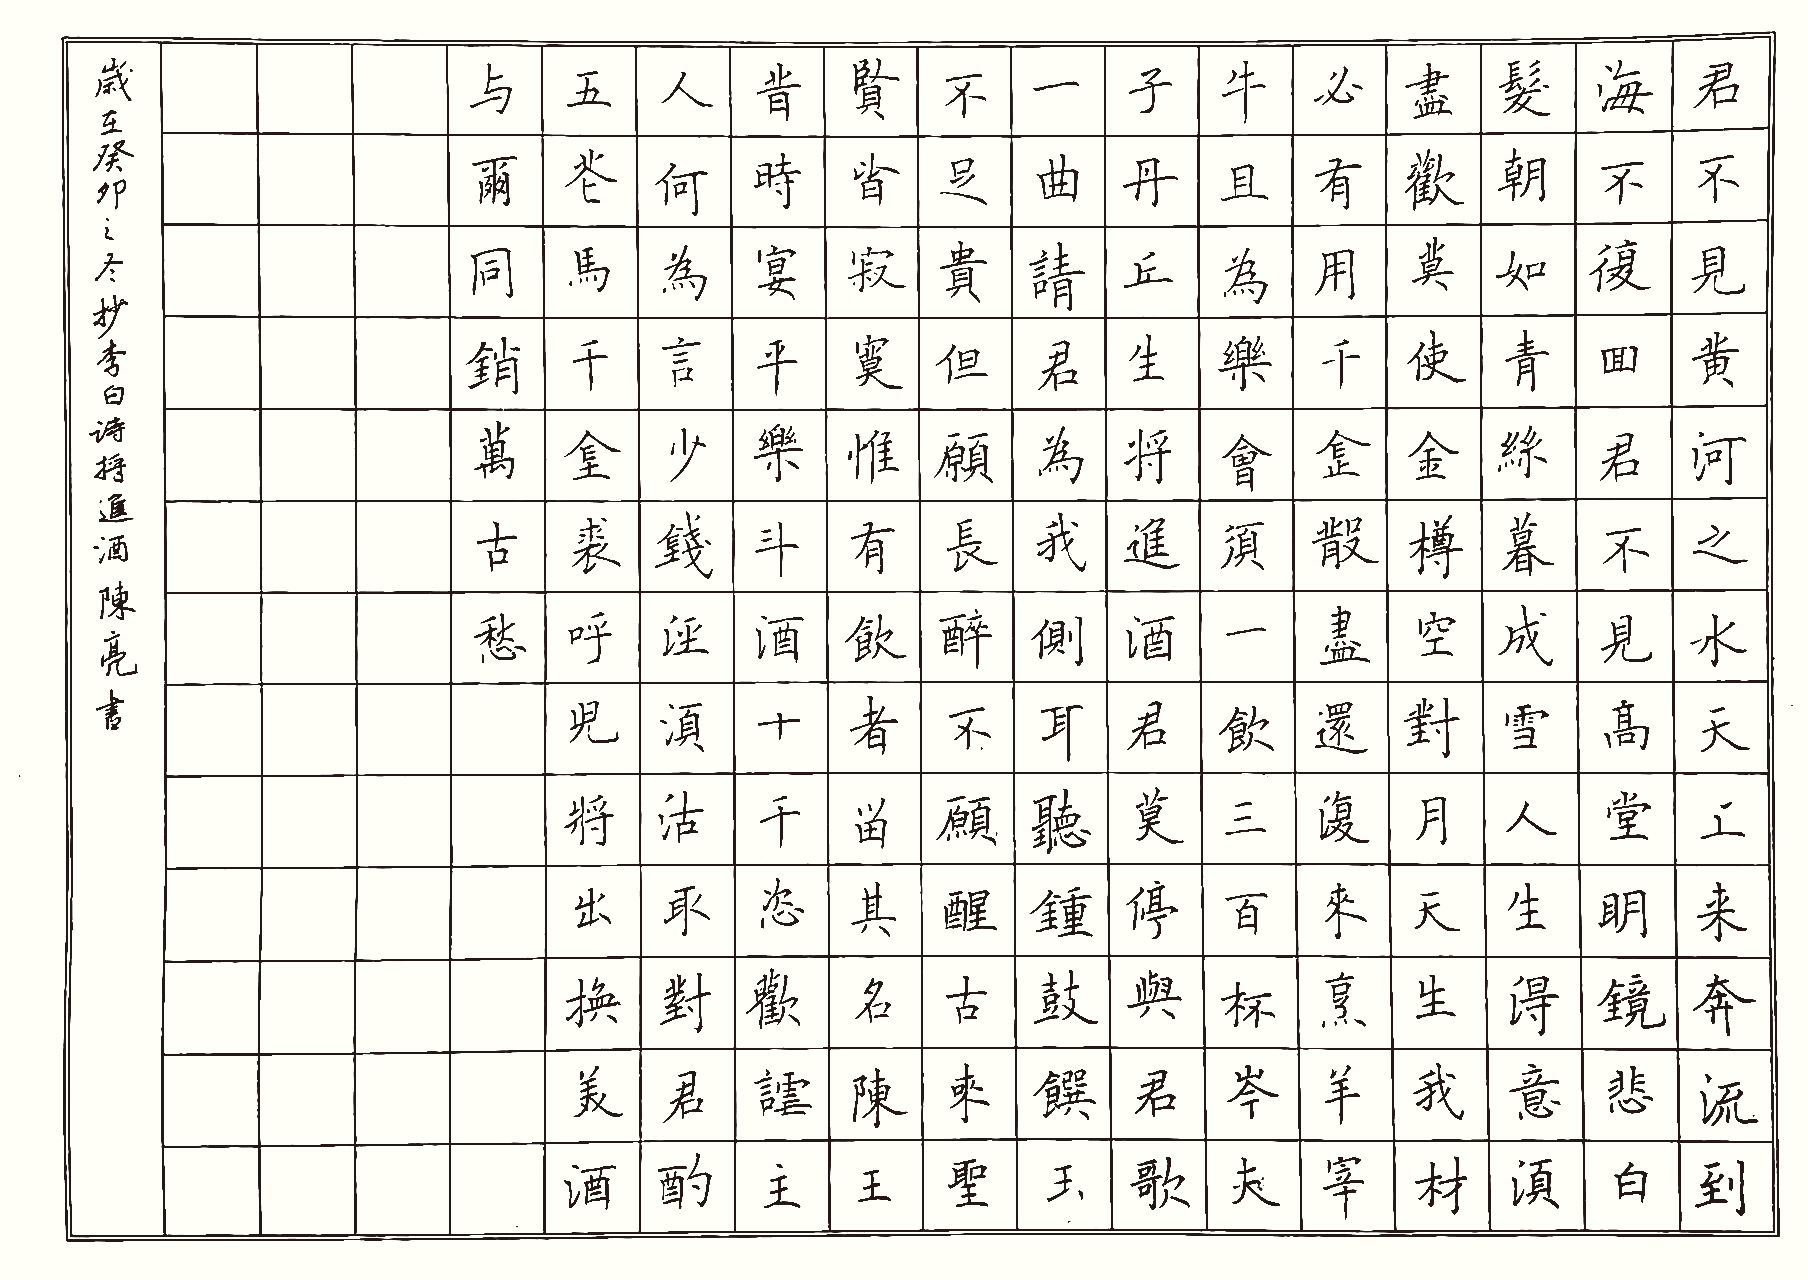 君不見黄河之水天上来奔流到
海不復囬君不見高堂明鏡悲白
髮朝如青絲暮成雪人生得意須
盡歡莫使金樽空對月天生我材
必有用千金散盡還復來烹羊宰
牛且為樂會須一飲三百杯岑夫
子丹丘生将進酒君莫停與君歌
一曲請君為我側耳聽鍾鼓饌玉
不足貴但願長醉不願醒古来聖
賢皆寂寞惟有飲者留其名陳王
昔時宴平樂斗酒十千恣歡謔主
人何為言少錢徑須沽取對君酌
五花馬千金裘呼兒将出換美酒
与爾同銷萬古愁
歲在癸卯之冬抄李白诗将進酒陳亮書